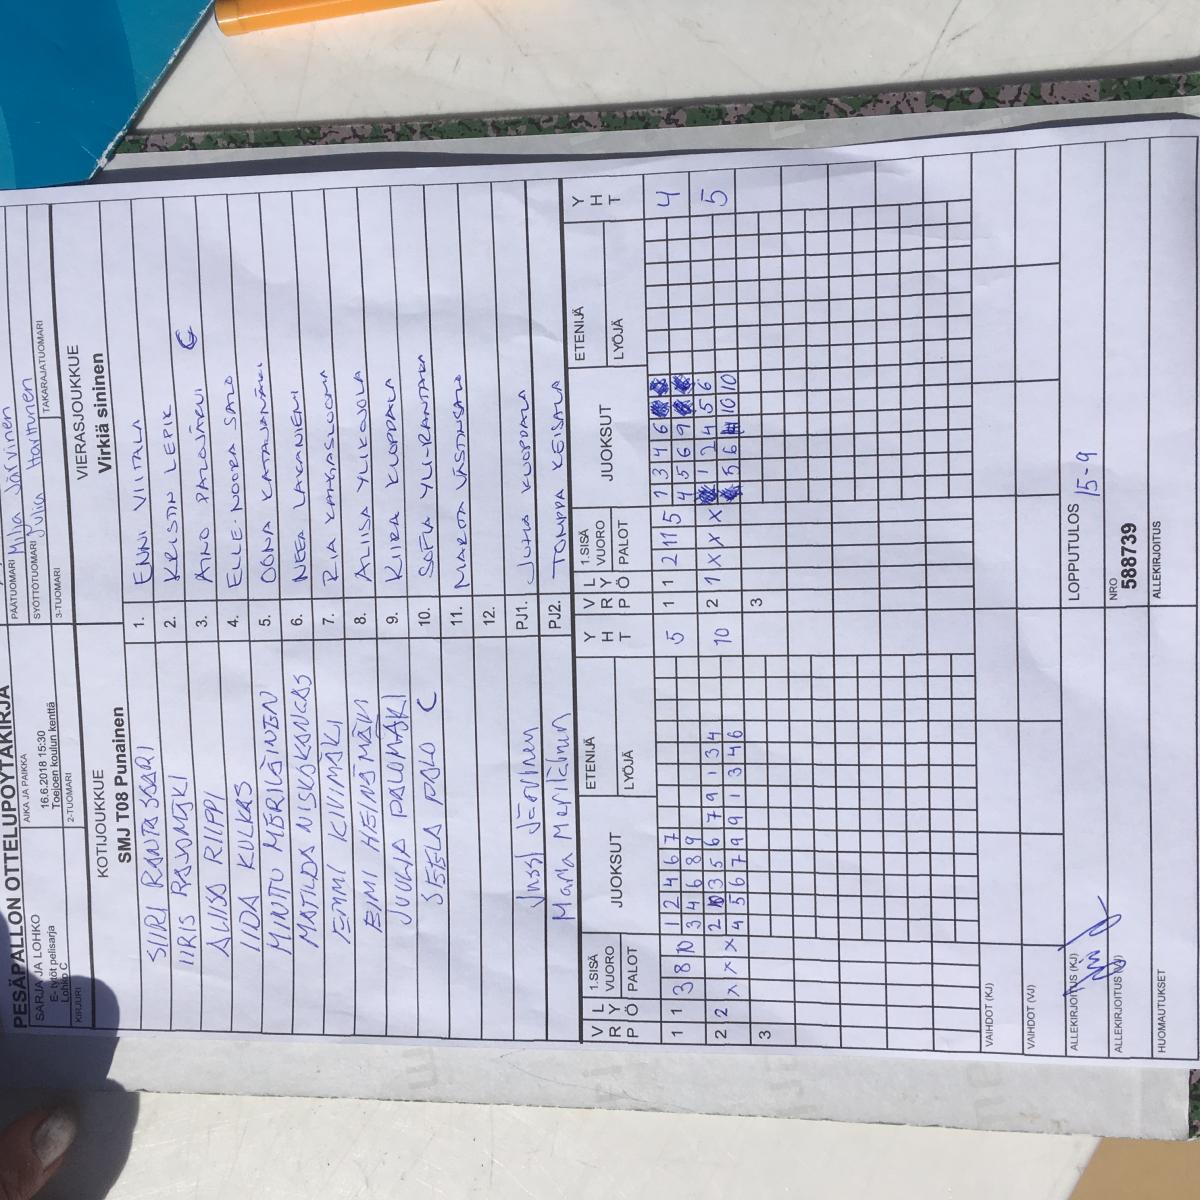 PESÄPALLON OTTELUPÖYTÄKIRJA
SARJA JA LOHKO
E- tytöt pelisarja
Lohko C
AIKA JA PAIKKA
16.6.2018 15:30
Toejoen koulun kenttä
PÄÄTUOMARI Milja Järvinen
SYÖTTÖTUOMARI Julia Harttunen
KIRJURI
2-TUOMARI
3-TUOMARI
TAKARAJATUOMARI
KOTIJOUKKUE
SMJ T08 Punainen
VIERASJOUKKUE
Virkiä sininen
SIIRI RANTASAARI 1. ENNI VIITALA
IIRIS RAJOMÄKI 2. KRISTIN LEPIK
ALIISA RIIPPI 3. AINO PALOJÄRVI C
IIDA KULKAS 4. ELLE-NOORA SALO
MINTTU MERILÄINEN 5. OONA KATAJAMÄKI
MATILDA NISKAKANGAS 6. NEEA LAKANIEMI
EMMI KIVIMÄKI 7. RIA KANGASLUOMA
EIMI HEINÄMÄKI 8. ALIISA YLIKOJOLA
JUULIA PALOMÄKI 9. KIIRA KUOPPALA
SEELA PALO C 10. SOFIA YLI-RANTALA
11. MARTTA VÄSTINSALO
12.
Jussi Järvinen PJ1. JUHA KUOPPALA
Marla Meriläinen PJ2. TOMPPA KEISALA
V R P L Y Ö 1.SISÄ VUORO PALOT JUOKSUT ETENIJÄ LYÖJÄ Y H T V R P L Y Ö 1.SISÄ VUORO PALOT JUOKSUT ETENIJÄ LYÖJÄ Y H T
1 1 3 8 10 1 2 4 6 7 5 1 1 2 11 5 1 3 4 6 4
3 4 6 8 9 4 5 6 9
2 2 x x x 2 10 3 5 6 7 9 1 3 4 10 2 1 x x x 1 2 4 5 6 5
4 5 6 7 9 9 1 3 4 6 5 6 10 10
3 3
VAIHDOT (KJ)
VAIHDOT (VJ)
ALLEKIRJOITUS (KJ)
LOPPUTULOS 15-9
ALLEKIRJOITUS (VJ)
NRO
588739
HUOMAUTUKSET
ALLEKIRJOITUS